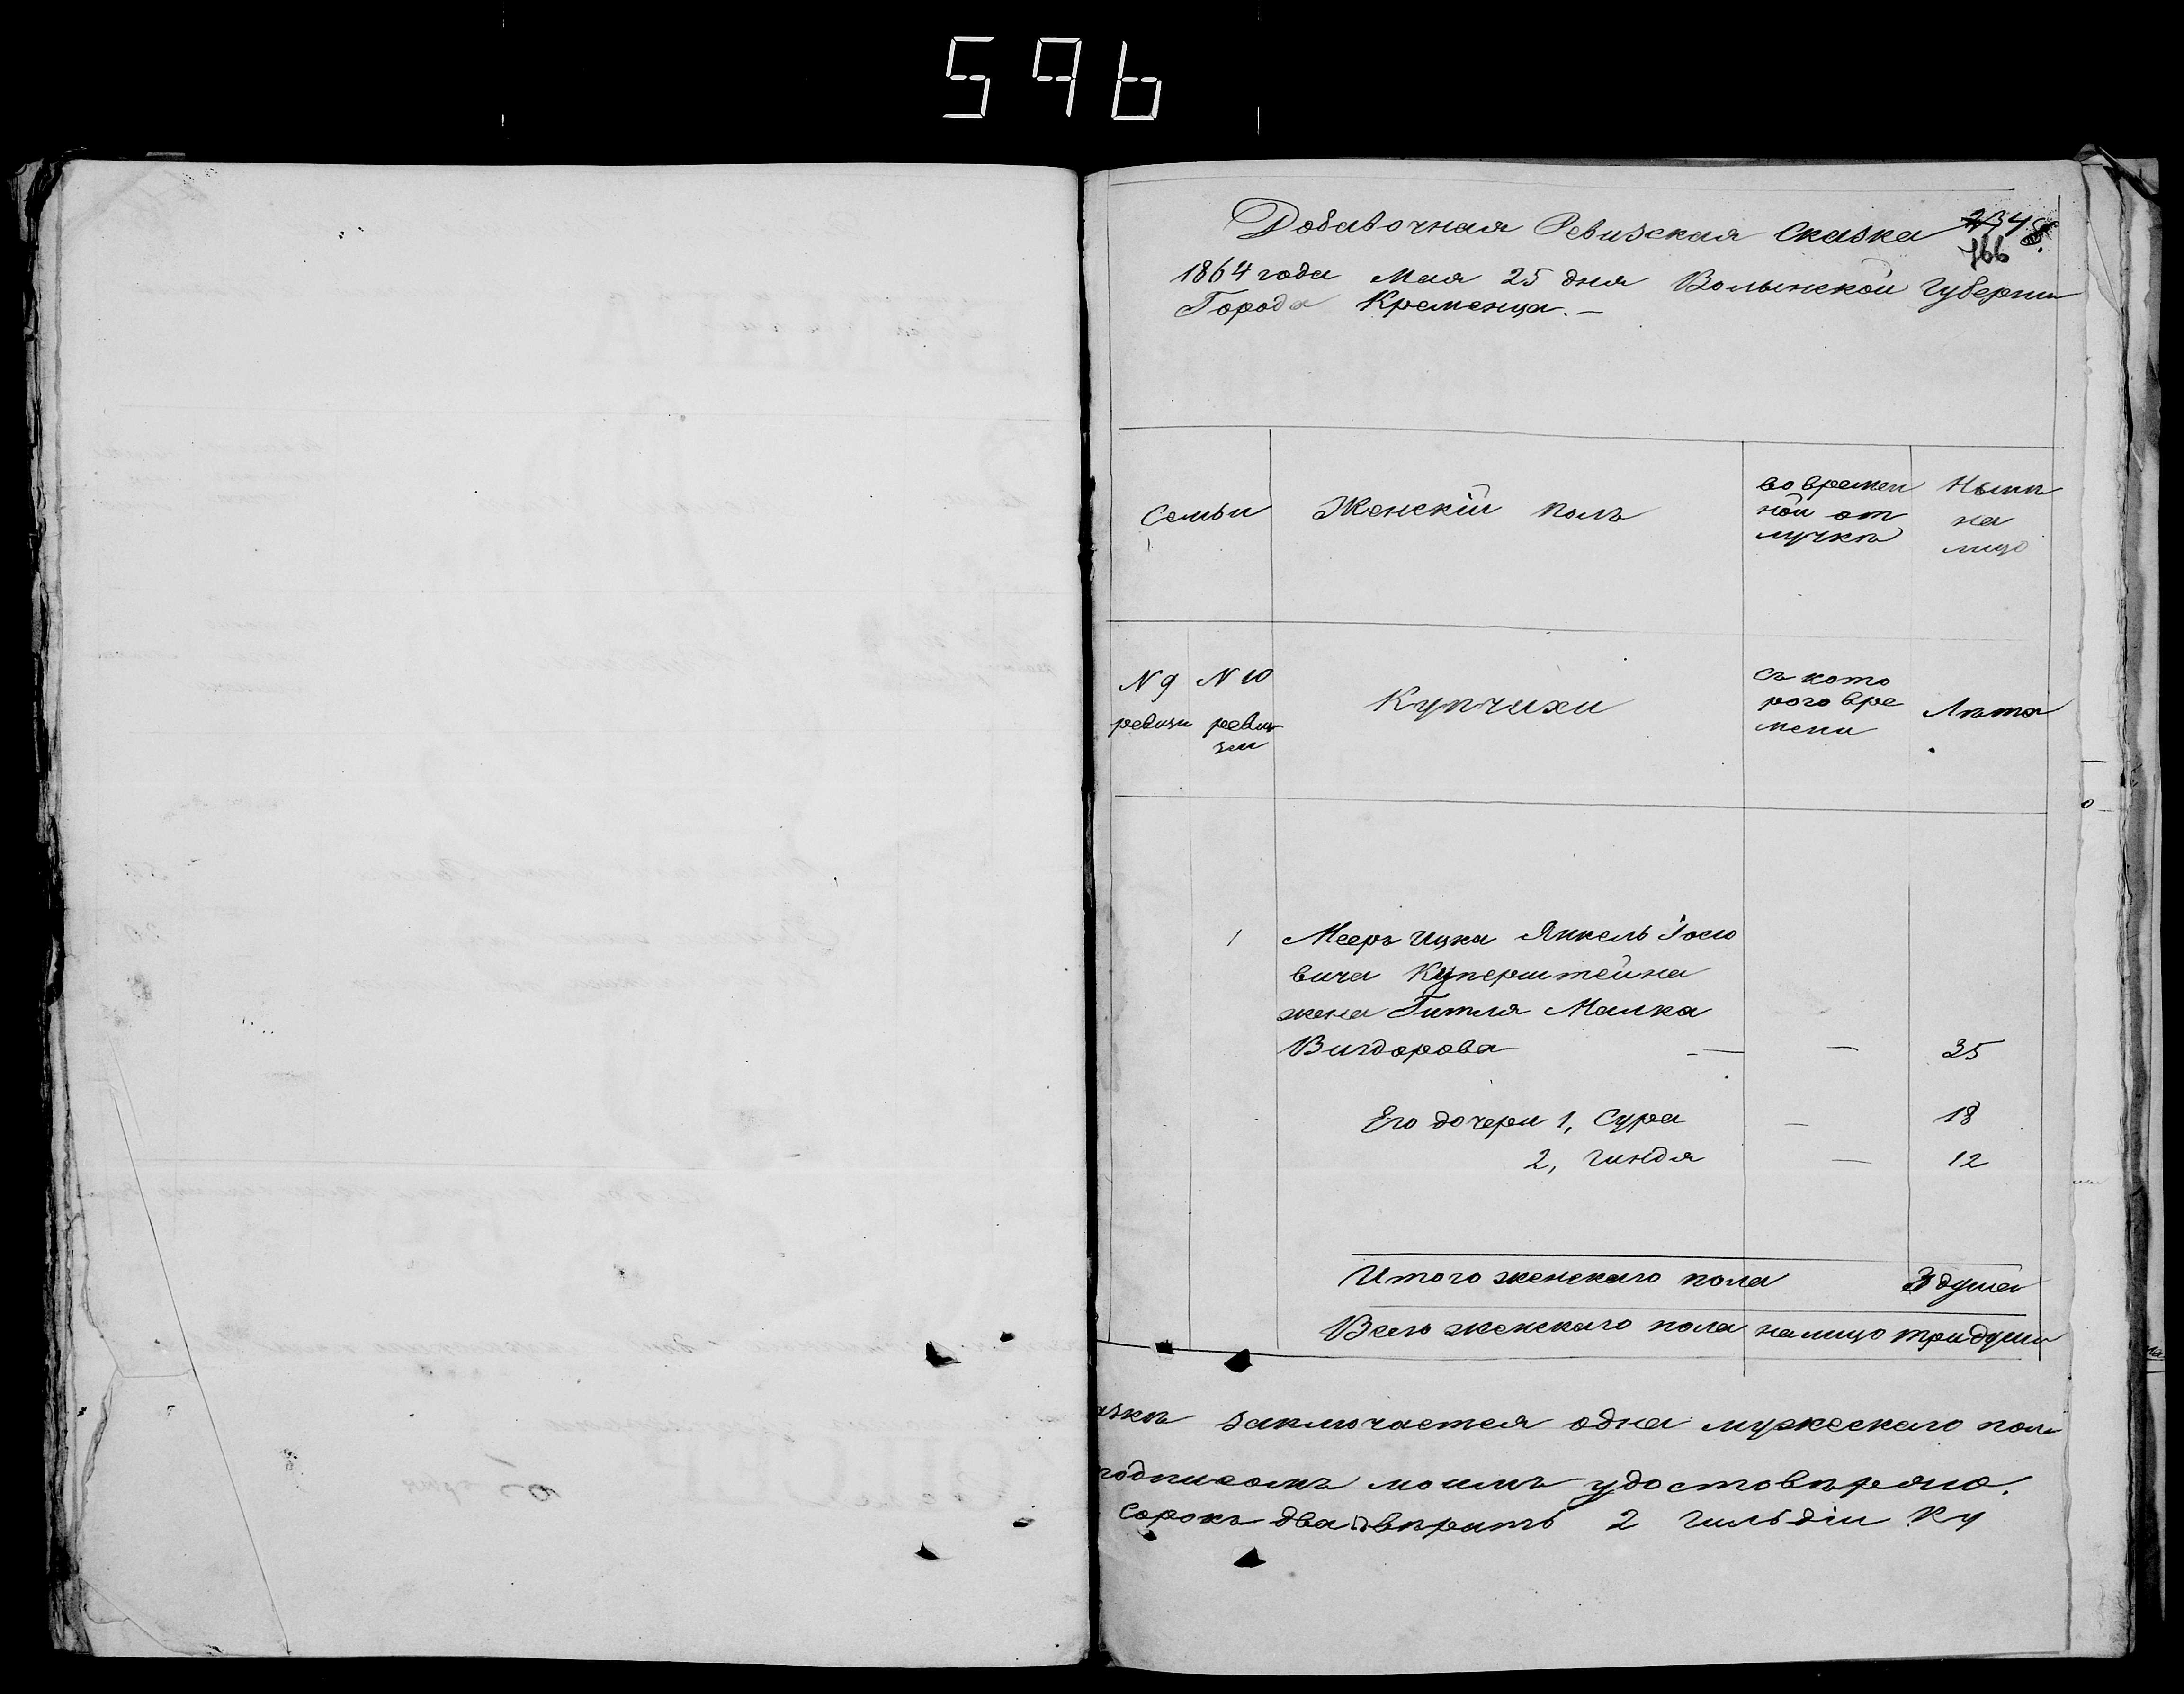 596
Добавочная Ревизская Сказка
166
1864 года Мая 25 дня Волынской Губернии
Города Кременца. —
Семьи
Женскій полъ
во времен
ной от
лучкѣ
Нынѣ
на
лицо
N 9
ревизи
N 10
реви
зіи
Купчихи
съ кото
рого вре
мени
Лѣта
1 Мееръ Ицка Янкель Іосіо
вича Куперштейна
жена Гитля Малка
Вигдорова — — 35
Его дочери 1, Сура — 18
2, Гиндя — 12
Итого женскаго пола 3 душа
Всего женскаго пола налицо три души
азкѣ заключается одна мужескаго пола
подписомъ моимъ удостовѣряю.
Сорокъ два вѣрать 2 Гильдіи Ку